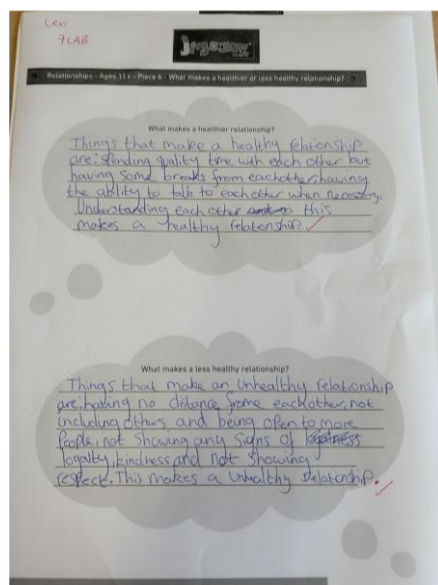 Lexi
7LAB
jigsaw
Relationships - Ages 11+ - Piece 6 - What makes a healthier or less healthy relationship?
What makes a healthier relationship?
Things that make a healthy relationship
are:spending quality time with each other but
having some breaks from eachother,having
the ability to talk to each other when necessary.
Understanding each other this
makes a healthy relationship.
What makes a less healthy relationship?
Things that make an Unhealthy relationship
are:having no distance frome eachother, not
including others, and being open to more
People, not showing any signs of
loyalty, kindness and not showing
respect. This makes a Unhealthy relationship.